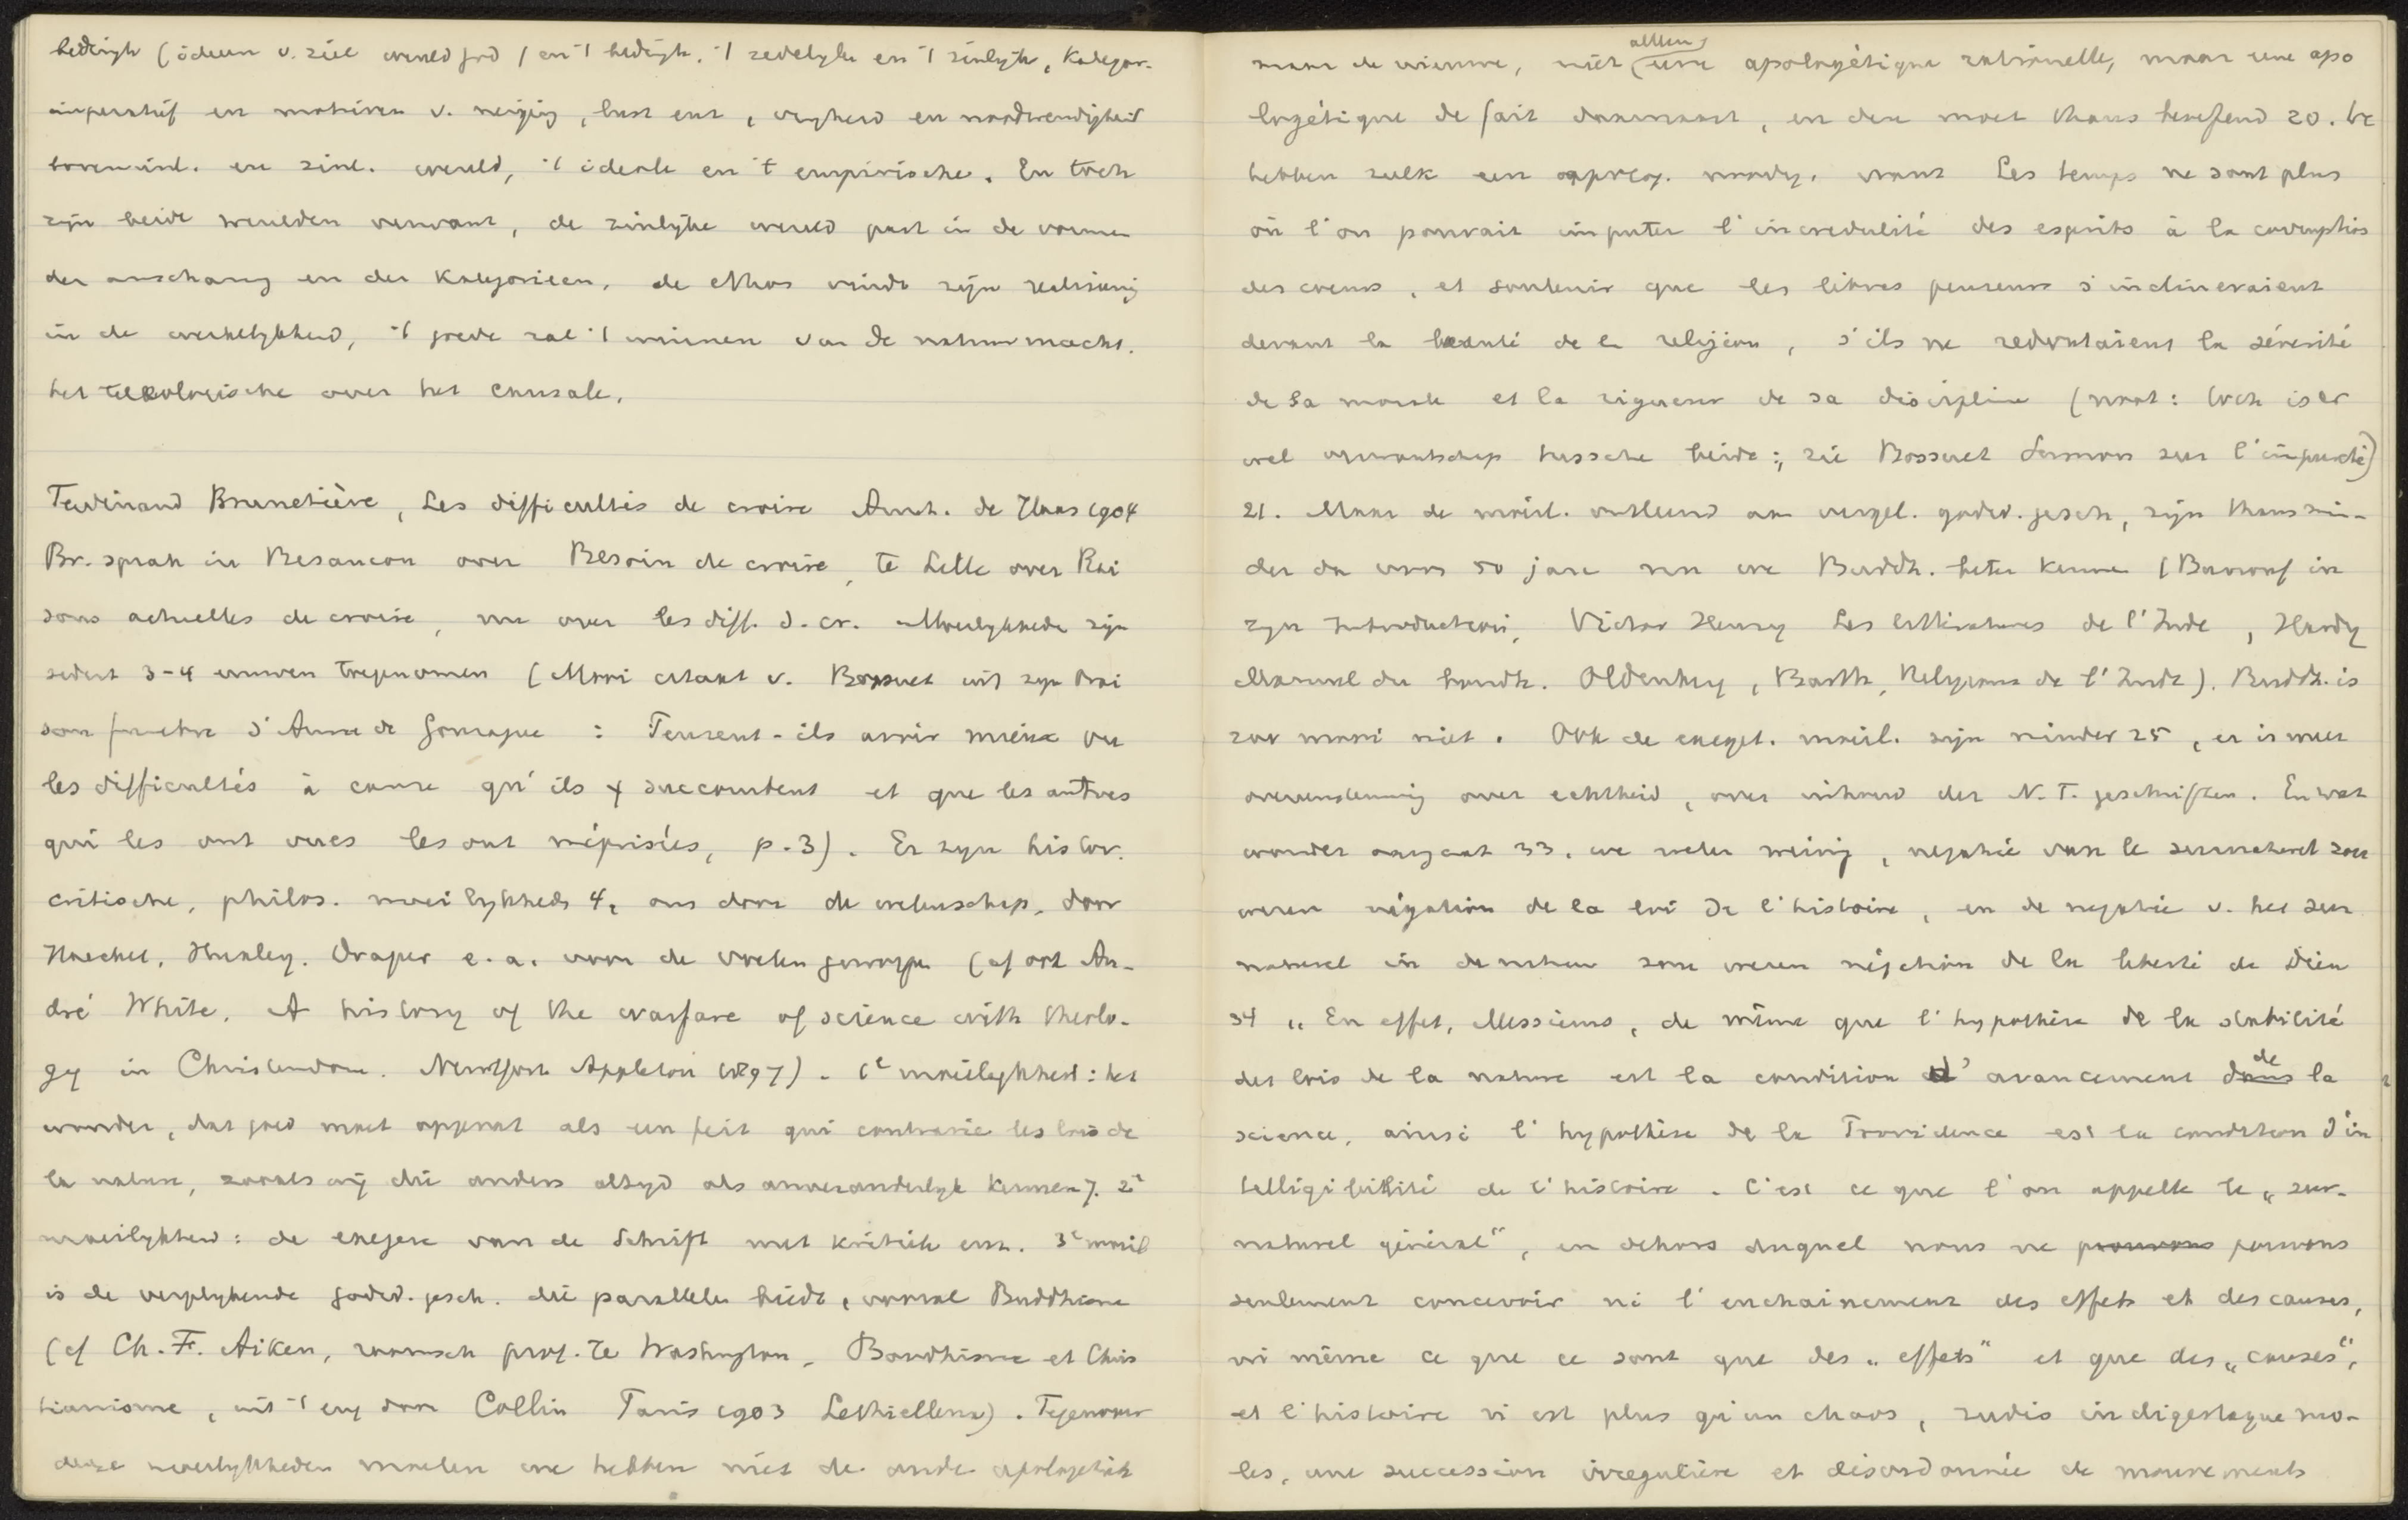 bedingte (ideeen v. ziel wereld god / en 't bedingte, 't zedelyke en 't zinlyke, Kategor.
imperatief en motieven v. neiging, lust enz, vryheid en noodwendigheid
bovenzinl. en zinl. wereld, 't ideale en 't empirische. En toch
zijn beide werelden verwant, de zinlyke wereld past in de vormen
der anschauung en der Kategorieen, de ethos vindt zijn realisering
in de werkelykheid, 't goede zal 't winnen van de natuurmacht.
het teleologische over het causale.
Ferdinand Brunetière, Les difficultés de croire Amst. de Haas 1904
Br. sprak in Besancon over Besoin de croire, te Lille over Rai
sons actuelles de croire, nu over les diff. d. cr. Moeilykhede zijn
sedert 3-4 eeuwen toegenomen (Mooi citaat v. Bossuet uit zyn Orai
son funebre d'Anne de Gonzague : Pensent-ils avoir mieux vu
les difficultés à cause qu'ils y succombent et que les autres
qui les ont vues les ont méprisées, p. 3). Er zyn histor.
critische, philos. moeilykheds 4, ons door de wetenschap, door
Haeckel, Huxley, Draper e. a. voor de voeten geworpe (cf ook An-
dré White, A history of the warfare of science with theolo-
gy in Christendom. Newyork Appleton 1897). 1e moeilykheid: het
wonder, dat goed moet opgevat als een feit qui contrarie les lois de
la nature, zooals wij die anders altyd als onveranderlyk kennen 7. 2e
moeilykheid: de exegese van de Schrift met kritiek enz. 3e moeil
is de vergelykende godsd. gesch. die parallele biedt, vooral Buddhisme
(cf Ch. F. Aiken, roomsch prof. te Washington, Bouddhisme et Chris
tianisme, uit 't eng door Collin Paris 1903 Lethielleux). Tegenover
deze moeilykheden moeten we hebben niet de oude apologetiek
maar de nieuwe, niet (alleen) une apologétique rationelle, maar une apo
logétique de fait
hebben zulk een apolog. noodig, want Les temps ne sont plus
où l'on pouvait imputer l'incredulité des esprits à la corruption
des coeurs, et soutenir que les libres penseurs s'inclineraient
devant la beauté de la religion, s'ils ne redoutaient la sévérité
de sa morale et la rigueur de sa discipline (noot: toch is er
wel verwantschap tussche beide: zie Bossuet Sermon sur l'impureté)
21. Maar de moeil. ontleend aan vergel. godsd. gesch, zijn thans min-
der dan voor 50 jare nu we Buddh. beter kenne (Burnouf in
zyn Introduction, Victor Henry Les littératures de l'Inde, Hardy
Manual du bouddh. Oldenburg, Barth, Religions de l'Inde). Buddh. is
zoo mooi niet. Ook de exeget. moeil. zijn minder 25, er is meer
overeenstemming over echtheid, over inhoud der N. T. geschriften. En wat
wonder aangaat 33, we weten weinig, negatie van le surnaturel zou
wezen négation de la loi de l'histoire, en de negatie v. het sur
naturel in de natuur zou wezen négation de la liberté de Dieu
34 „En effet, Messieurs, de même que l'hypothèse de la stabilité
des lois de la nature est la condition d'avancement dans de la
science, ainsi l'hypothèse de la Providence est la condition d'in
telligibilité de l'histoire. C'est ce que l'on appelle le „sur-
naturel général“, en dehors duquel nous ne pouvons pouvons
seulement concevoir ni l'enchainement des effets et des causes,
ni même ce que ce sont que des „effets“ et que des „causes“,
et l'histoire n'est plus qu'un chaos, rudis indigestaque mo-
les, une succession irregulière et désordonnée de mouvements